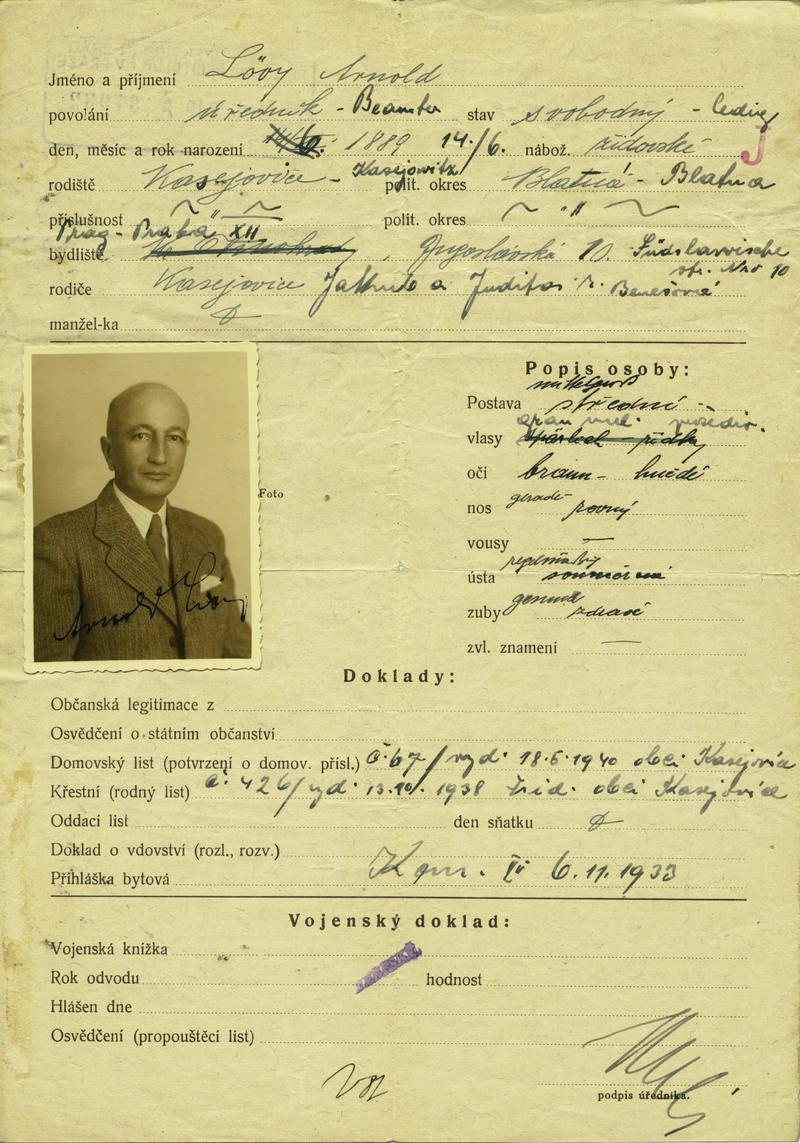 Jméno a příjmení Löwy Arnold
povolání úředník - Beamter stav svobodný - ledig
den, měsíc a rok narození 1889 14/6. nábož. židovské J
rodiště Kasejovice - Kasejowitz polit. okres Blatná - Blatna
příslušnost ~ " ~ polit. okres ~ " ~
Prag - Praha XII
bydliště , Jugoslávská 10. Südslawische
str. Nro 10
rodiče Kasejovice a r. Benešová
manžel-ka
Popis osoby:
Postava střední -
vlasy prošediv.
oči braun - hnědé
gerade
nos rovný
vousy —
regelmäßig
ústa souměrná
gesund
zuby zdravé
zvl. znamení —
Foto
Arnold Löwy
Doklady:
Občanská legitimace z
Osvědčení o státním občanství
Domovský list (potvrzení o domov. přísl.) č. 67/vyd. 18.6.1940 obcí Kasejovice
Křestní (rodný list) č. 426/vyd. 13.10.1938 žid. obcí Kasejovice
Oddací list den sňatku
Doklad o vdovství (rozl., rozv.)
Přihláška bytová Kom. 6.11.1933
Vojenský doklad:
Vojenská knížka
Rok odvodu hodnost
Hlášen dne
Osvědčení (propouštěcí list)
podpis úředníka.